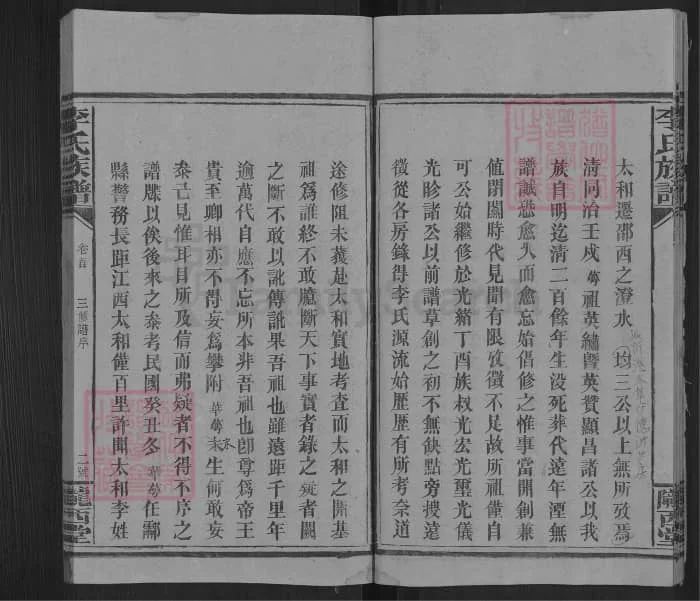 李氏族譜
太和遷邵西之澄水 均三公以上無所攷焉
清同治壬戍 勢祖英繡曁英贊顯昌諸公以我
族自明迄清二百餘年生没死葬代遠年湮無
譜誠恐愈久而愈忘始倡修之惟事當開創兼
値閉關時代見聞有限攷徵不足故所祖僅自
可公始繼修於光緒丁酉族叔光宏光璽光儀
光昣諸公以前譜草創之初不無缺點旁搜遠
徵從各房錄得李氏源流始歷歷有所考奈道
隴西堂
途修阻未蓛赴太和實地考査而太和之開基
祖爲誰終不敢臆斷天下事實者錄之疑者闕
之斷不敢以訛傳訛果吾祖也雖遠距千里年
逾萬代自應不忘所本非吾祖也卽尊爲帝王
貴至卿相亦不得妄爲攀附 華勢未生何敢妄
泰已見惟耳目所及信而弗疑者不得不序之
譜牒以俟後來之泰考民國癸丑冬 華勢任酃
縣警務長距江西太和僅百里許聞太和李姓
李氏族譜
卷首
三修譜序
二號
隴西堂
FamilySearch